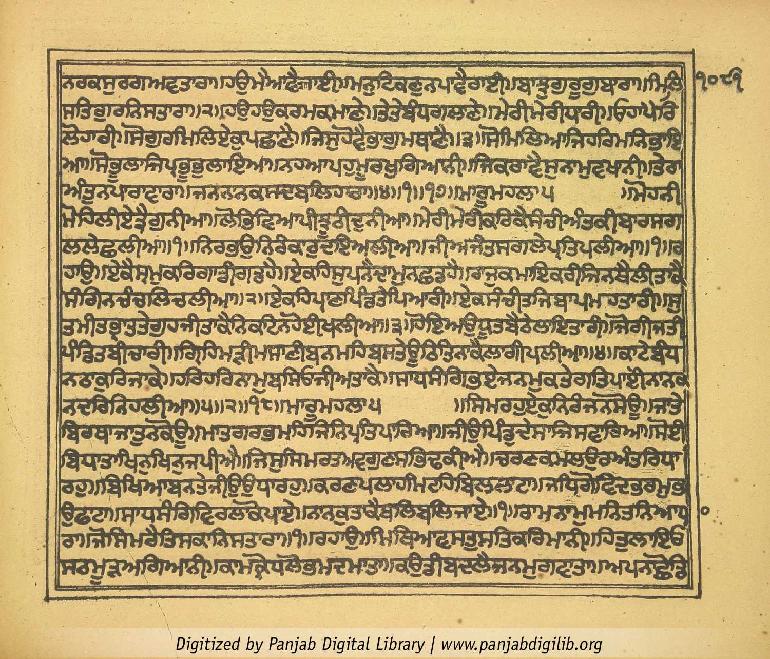 ਨਰਕਸੁਰਗਅਵਤਾਰਾ॥ਹਉਮੈਆਵੈਜਾਈ॥ਮਨੁਟਿਕਣੁਨਪਾਵੈਰਾਈ॥ਬਾਝੁਗੁਰੂਗੁਬਾਰਾ॥ਮਿਲਿ ੧੦੮੧
ਸਤਿਗੁਰਨਿਸਤਾਰਾ॥੨॥ਹਉਹਉਕਰਮਕਮਾਣੇ॥ਤੇਤੇਬੰਧਗਲਾਣੇ॥ਮੇਰੀਮੇਰੀਧਾਰੀ॥ਓਹਾਪੈਰਿ
ਲੋਹਾਰੀ॥ਸੋਗੁਰਮਿਲਿਏਕੁਪਛਾਣੈ॥ਜਿਸੁਹੋਵੈਭਾਗੁਮਥਾਣੈ॥੩॥ਸੋਮਿਲਿਆਜਿਹਰਿਮਨਿਭਾਇ
ਆ॥ਸੋਭੂਲਾਜਿਪ੍ਰਭੂਭੁਲਾਇਆ॥ਨਹਆਪਹੁਮੂਰਖੁਗਿਆਨੀ॥ਜਿਕਰਾਵੈਸੁਨਾਮੁਵਖਾਨੀ॥ਤੇਰਾ
ਅੰਤੁਨਪਾਰਾਵਾਰਾ॥ਜਨਨਾਨਕਸਦਬਲਿਹਾਰਾ॥੪॥੧॥੧੭॥ਮਾਰੂਮਹਲਾ੫ ॥ਮੋਹਨੀ
ਮੋਹਿਲੀਏਤ੍ਰੈਗੁਨੀਆ॥ਲੋਭਿਵਿਆਪੀਝੂਠੀਦੁਨੀਆ॥ਮੇਰੀਮੇਰੀਕਰਿਕੈਸੰਚੀਅੰਤਕੀਬਾਰਸਗ
ਲਲੇਛਲੀਆ॥੧॥ਨਿਰਭਉਨਿਰੰਕਾਰੁਦਇਅਲੀਆ॥ਜੀਅਜੰਤਸਗਲੇਪ੍ਰਤਿਪਲੀਆ॥੧॥ਰ
ਹਾਉ॥ਏਕੈਸ੍ਰਮੁਕਰਿਗਾਡੀਗਡਹੈ॥ਏਕਹਿਸੁਪਨੈਦਾਮੁਨਛਡਹੈ॥ਰਾਜੁਕਮਾਇਕਰੀਜਿਨਿਥੈਲੀਤਾਕੈ
ਸੰਗਿਨਚੰਚਲਿਚਲੀਆ॥੨॥ਏਕਹਿਪ੍ਰਾਣਪਿੰਡਤੇਪਿਆਰੀ॥ਏਕਸੰਚੀਤਜਿਬਾਪਮਹਤਾਰੀ॥ਸੁ
ਤਮੀਤਭ੍ਰਾਤਤੇਗੁਹਜੀਤਾਕੈਨਿਕਟਿਨਹੋਈਖਲੀਆ॥੩॥ਹੋਇਅਉਧੂਤਬੈਠੇਲਾਇਤਾਰੀ॥ਜੋਗੀਜਤੀ
ਪੰਡਿਤਬੀਚਾਰੀ॥ਗ੍ਰਿਹਿਮੜੀਮਸਾਣੀਬਨਮਹਿਬਸਤੇਊਠਿਤਿਨਾਕੈਲਾਗੀਪਲੀਆ॥੪॥ਕਾਟੇਬੰਧ
ਨਠਾਕੁਰਿਜਾਕੇ॥ਹਰਿਹਰਿਨਾਮੁਬਸਿਓਜੀਅਤਾਕੈ॥ਸਾਧਸੰਗਿਭਏਜਨਮੁਕਤੇਗਤਿਪਾਈਨਾਨਕ
ਨਦਰਿਨਿਹਲੀਆ॥੫॥੨॥੧੮॥ਮਾਰੂਮਹਲਾ੫ ॥ਸਿਮਰਹੁਏਕੁਨਿਰੰਜਨਸੋਊ॥ਜਾਤੇ
ਬਿਰਥਾਜਾਤਨਕੋਊ॥ਮਾਤਗਰਭਮਹਿਜਿਨਿਪ੍ਰਤਿਪਾਰਿਆ॥ਜੀਉਪਿੰਡੁਦੇਸਾਜਿਸਵਾਰਿਆ॥ਸੋਈ
ਬਿਧਾਤਾਖਿਨੁਖਿਨੁਜਪੀਐ॥ਜਿਸੁਸਿਮਰਤਅਵਗੁਣਸਭਿਢਕੀਐ॥ਚਰਣਕਮਲਉਰਅੰਤਰਿਧਾ
ਰਹੁ॥ਬਿਖਿਆਬਨਤੇਜੀਉਉਧਾਰਹੁ॥ਕਰਣਪਲਾਹਮਿਟਹਿਬਿਲਲਾਟਾ॥ਜਪਿਗੋਵਿਦਭਰਮੁਭ
ਉਫਾਟਾ॥ਸਾਧਸੰਗਿਵਿਰਲਾਕੋਪਾਏ॥ਨਾਨਕੁਤਾਕੈਬਲਿਬਲਿਜਾਏ॥੧॥ਰਾਮਨਾਮੁਮਨਿਤਨਿਆਧਾ
ਰਾ॥ਜੋਸਿਮਰੈਤਿਸਕਾਨਿਸਤਾਰਾ॥੧॥ਰਹਾਉ॥ਮਿਥਿਆਵਸਤੁਸਤਿਕਰਿਮਾਨੀ॥ਹਿਤੁਲਾਇਓ
ਸਠਮੂੜਅਗਿਆਨੀ॥ਕਾਮਕ੍ਰੋਧਲੋਭਮਦਮਾਤਾ॥ਕਉਡੀਬਦਲੈਜਨਮੁਗਵਾਤਾ॥ਅਪਨਾਛੋਡਿ
Digitized by Panjab Digital Library | www.panjabdigilib.org